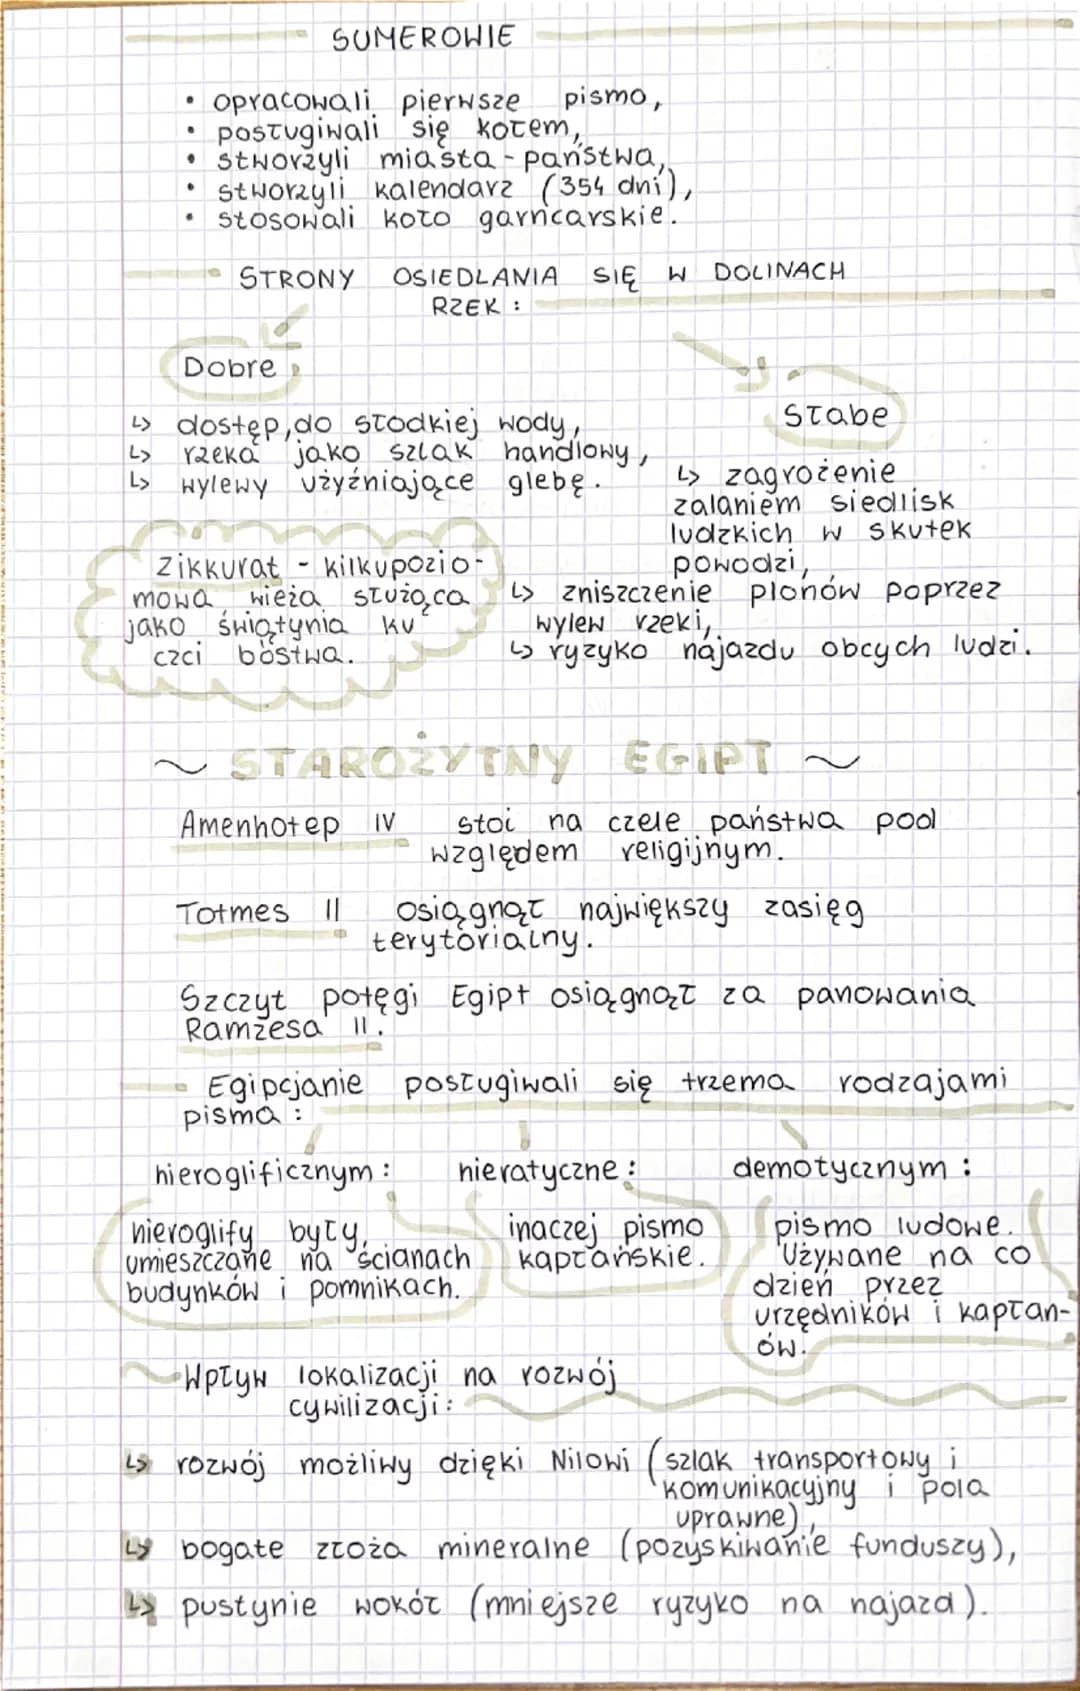 SUMEROWIE
• opracowali pierwsze pismo,
• posługiwali się kołem,
• stworzyli miasta-państwa,
• stworzyli kalendarz (354 dni),
• stosowali koło garncarskie.
STRONY OSIEDLANIA SIĘ W DOLINACH
RZEK:
Dobre
↳ dostęp do słodkiej wody,
↳ rzeka jako szlak handlowy,
↳ wylewy użyźniające glebę.
Słabe
↳ zagrożenie
zalaniem siedlisk
ludzkich w skutek
powodzi,
↳ zniszczenie plonów poprzez
wylew rzeki,
↳ ryzyko najazdu obcych ludzi.
Zikkurat - kilkupozio-
mowa wieża służąca
jako świątynia ku
czci bóstwa.
~ STAROŻYTNY EGIPT ~
Amenhotep IV stoi na czele państwa pod
względem religijnym.
Totmes II osiągnął największy zasięg
terytorialny.
Szczyt potęgi Egipt osiągnął za panowania
Ramzesa II.
Egipcjanie posługiwali się trzema rodzajami
pisma:
hieroglificznym:
hieroglify były
umieszczane na ścianach
budynków i pomnikach.
hieratyczne:
inaczej pismo
kapłańskie.
demotycznym:
pismo ludowe.
Używane na co
dzień przez
urzędników i kapłan-
ów.
Wpływ lokalizacji na rozwój
cywilizacji:
↳ rozwój możliwy dzięki Nilowi (szlak transportowy i
komunikacyjny i pola
uprawne),
↳ bogate złoża mineralne (pozyskiwanie funduszy),
↳ pustynie wokół (mniejsze ryzyko na najazd).